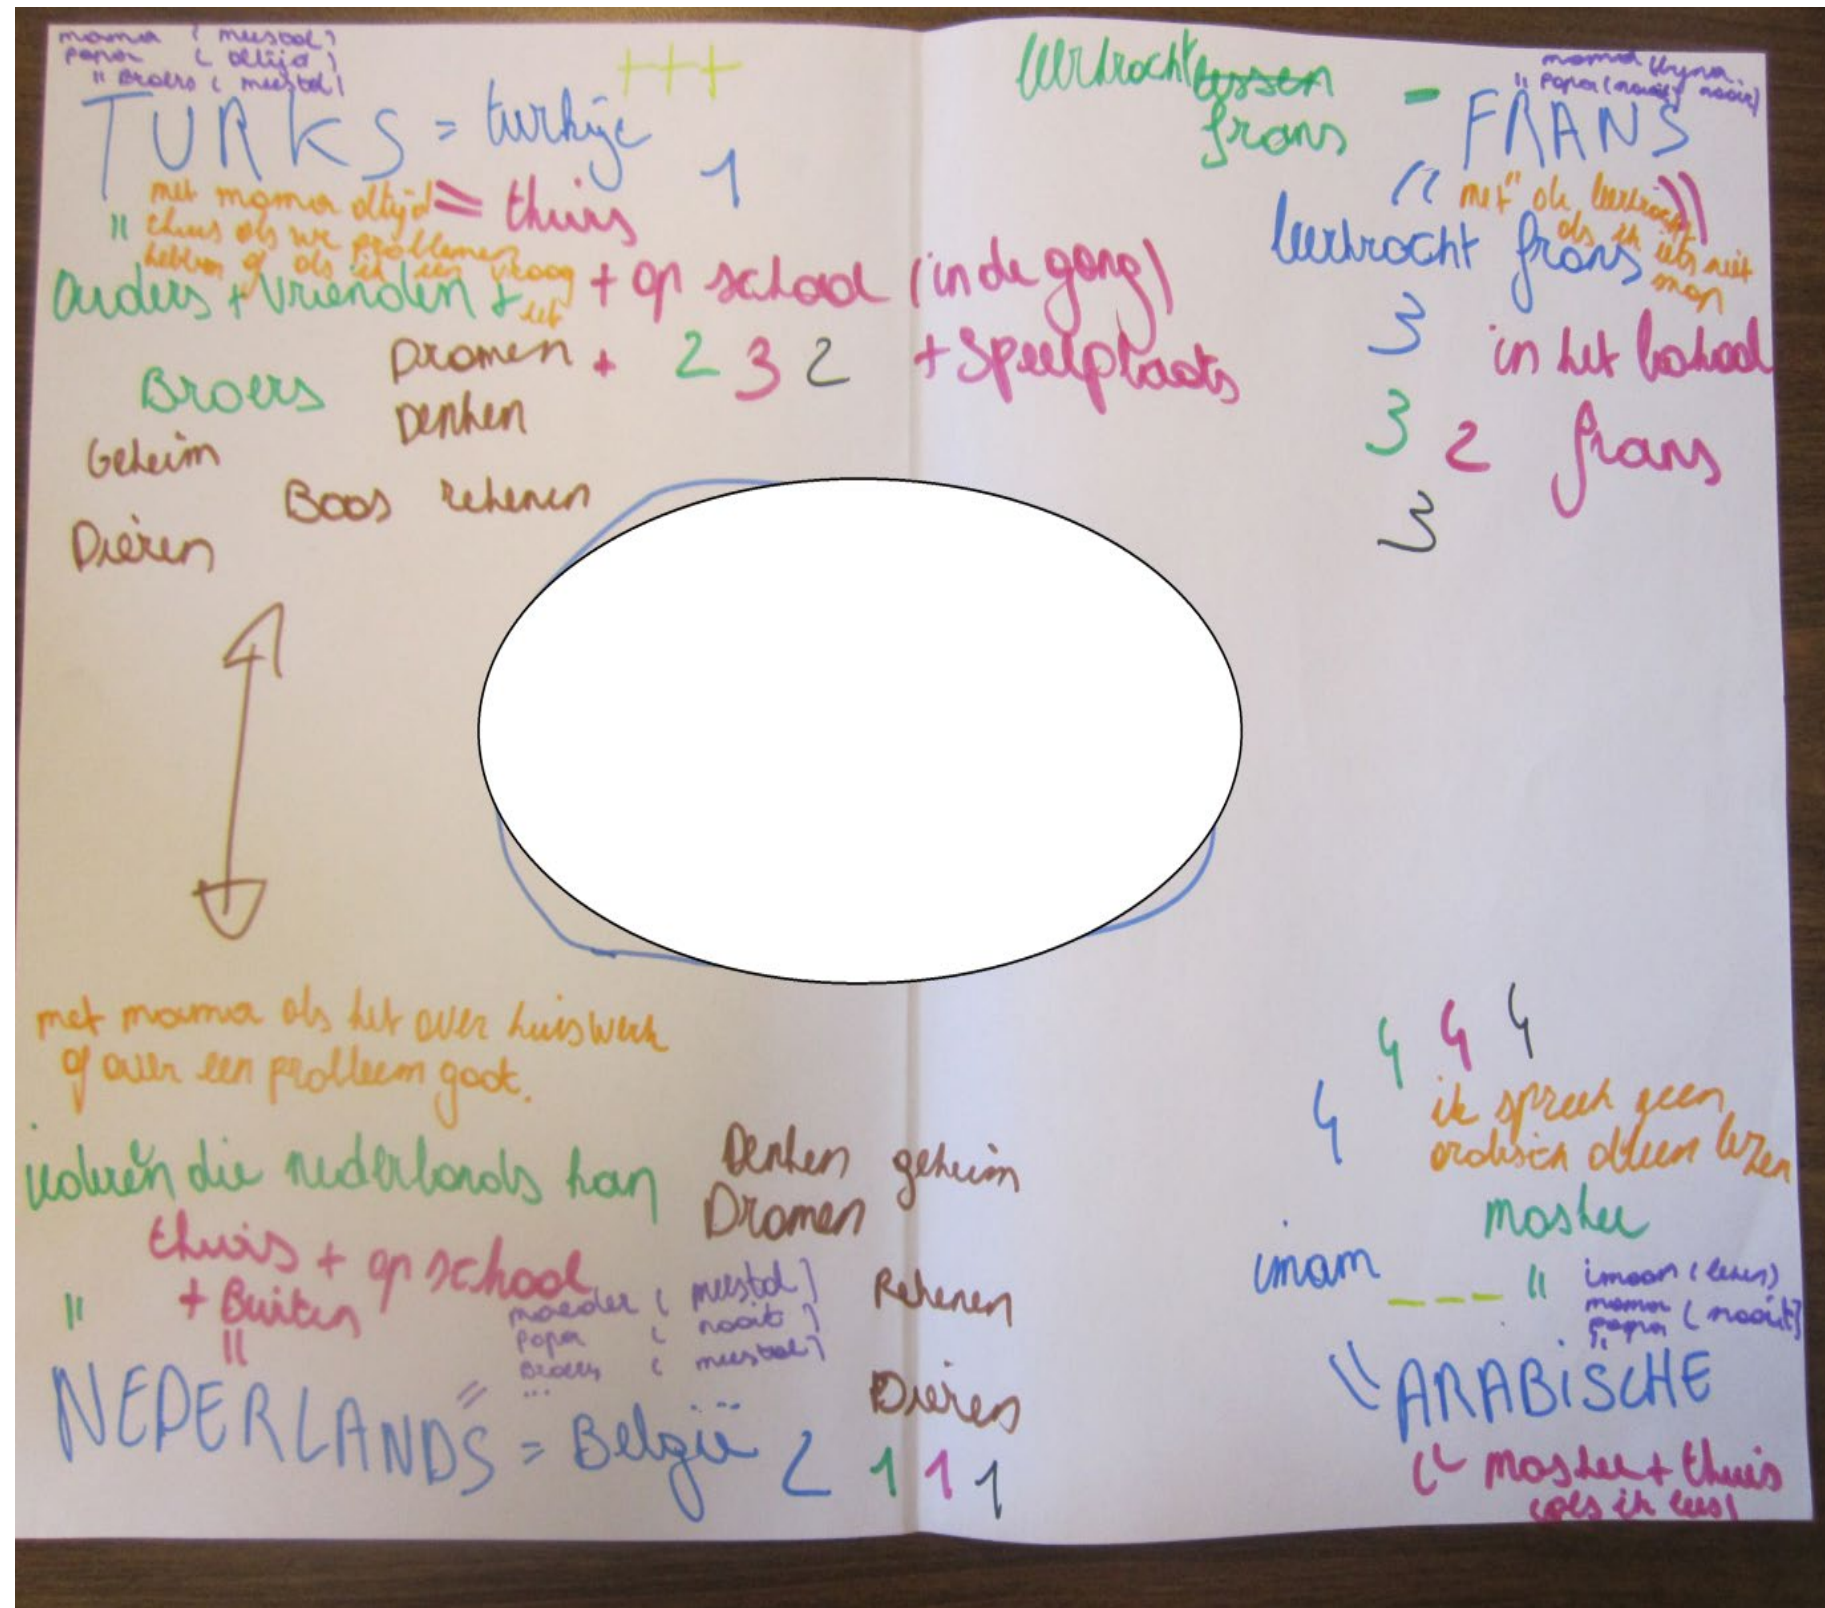 mama ( meestal )
papa ( altijd )
" Broers ( meestal )
TURKS = turkije
+++
1
met mama altijd
= thuis
" thuis als we problemen
hebben of als ik een vraag
ouders + vrienden +
+ op school (in de gang)
Broers
Dromen + 2 3 2 + Speelplaats
Denken
Geheim
Boos rekenen
Dieren
leerkracht lessen -
frans
mama
" papa (nooit) nooit)
FRANS
" met " de leerkracht "
als ik iets niet
snap
leerkracht frans
3 in het lokaal
3 2 frans
3
met mama als het over huiswerk
of over een probleem gaat.
iedereen die nederlands kan
thuis + op school
" + Buiten
"
moeder ( meestal )
papa ( nooit )
Broers ( meestal )
" ...
NEDERLANDS = België 2 1 1 1
Denken geheim
Dromen
Rekenen
Dieren
4 4 4
4
ik spreek geen
arabisch alleen lezen
moskee
imam _ _ _ "
imaan (lezen)
mama ( nooit)
papa
"
" ARABISCHE
" moskee + thuis
(als ik lees)